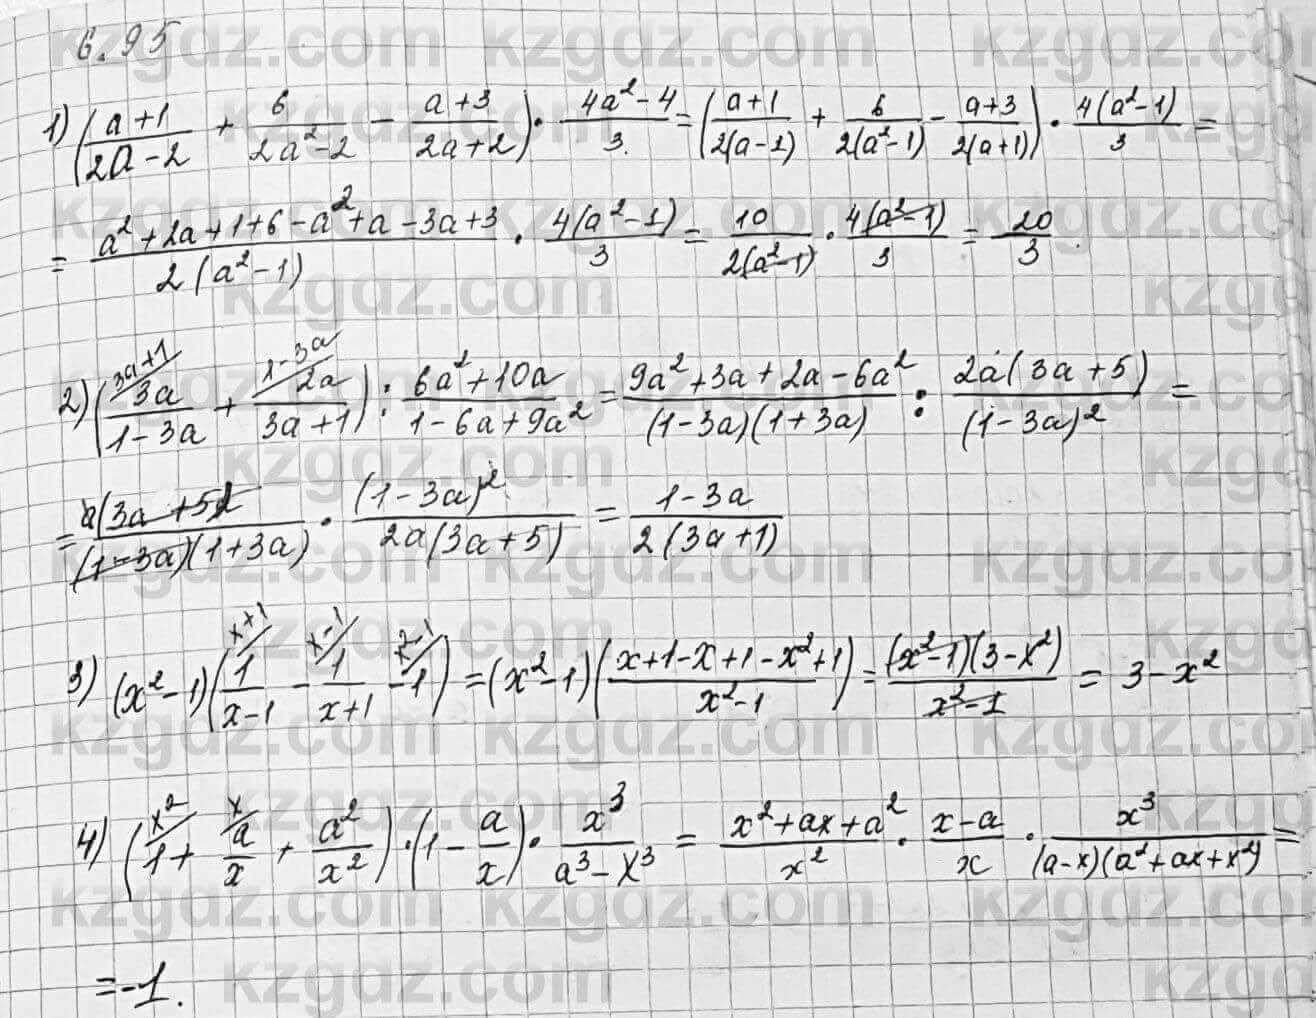 6.95
1) ((a+1)/(2a-2) + 6/(2a²-2) - (a+3)/(2a+2)) · (4a²-4)/3. = ((a+1)/(2(a-1)) + 6/(2(a²-1)) - (a+3)/(2(a+1))) · 4(a²-1)/3 =
= (a²+2a+1+6-a²+a-3a+3)/(2(a²-1)) · 4(a²-1)/3 = 10/(2(a²-1)) · 4(a²-1)/3 = 20/3.
2) (3a+1/ 3a/(1-3a) + 1-3a/ 2a/(3a+1)) : (6a²+10a)/(1-6a+9a²) = (9a²+3a+2a-6a²)/((1-3a)(1+3a)) : 2a(3a+5)/(1-3a)² =
= a(3a+5)/((1-3a)(1+3a)) · (1-3a)²/(2a(3a+5)) = (1-3a)/(2(3a+1))
3) (x²-1)(x+1/ 1/(x-1) - x-1/ 1/(x+1) - x²-1/ 1) = (x²-1)((x+1-x+1-x²+1)/(x²-1)) = (x²-1)(3-x²)/(x²-1) = 3-x²
4) (x²/ 1 + x/ a/x + a²/x²) · (1 - a/x) · x³/(a³-x³) = (x²+ax+a²)/x² · (x-a)/x · x³/((a-x)(a²+ax+x²)) =
= -1.
kzgdz.com